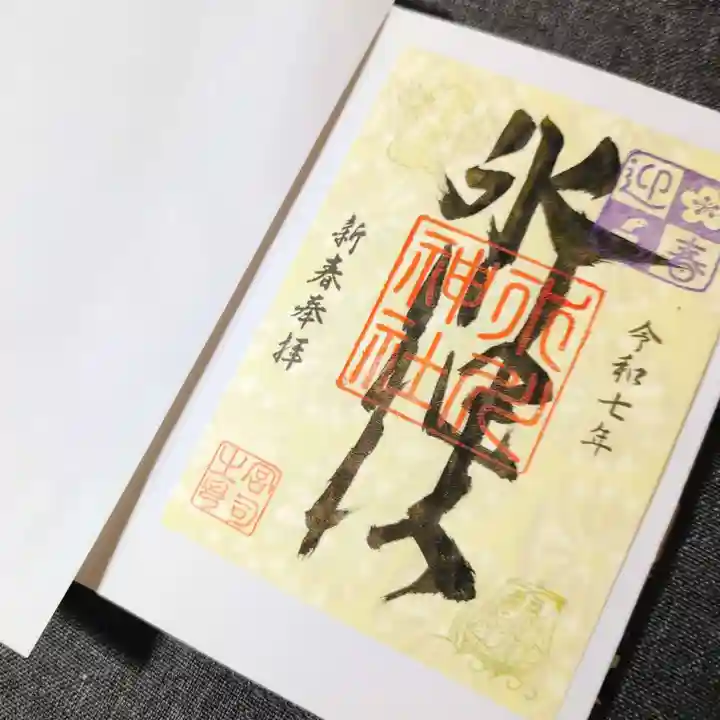 迎春
令和七年
氷川
氷川
神社
新春奉拝
宮司
之印